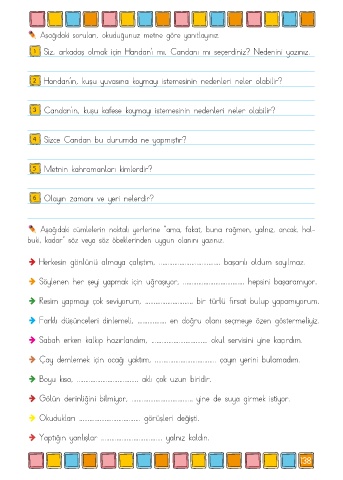 Aşağıdaki soruları, okuduğunuz metne göre yanıtlayınız.
1 Siz, arkadaş olmak için Handan'ı mı, Candanı mı seçerdiniz? Nedenini yazınız.
2 Handan'ın, kuşu yuvasına koymayı istemesinin nedenleri neler olabilir?
3 Candan'ın, kuşu kafese koymayı istemesinin nedenleri neler olabilir?
4 Sizce Candan bu durumda ne yapmıştır?
5 Metnin kahramanları kimlerdir?
6 Olayın zamanı ve yeri nelerdir?
Aşağıdaki cümlelerin noktalı yerlerine "ama, fakat, buna rağmen, yalnız, ancak, hal-
buki, kadar" söz veya söz öbeklerinden uygun olanını yazınız.
Herkesin gönlünü almaya çalıştım, ........................ başarılı oldum sayılmaz.
Söylenen her şeyi yapmak için uğraşıyor, ........................ hepsini başaramıyor.
Resim yapmayı çok seviyorum, .................... bir türlü fırsat bulup yapamıyorum.
Farklı düşünceleri dinlemeli, ............ en doğru olanı seçmeye özen göstermeliyiz.
Sabah erken kalkıp hazırlandım, ...................... okul servisini yine kaçırdım.
Çay demlemek için ocağı yaktım, ........................ çayın yerini bulamadım.
Boyu kısa, ........................ aklı çok uzun biridir.
Gölün derinliğini bilmiyor, ........................ yine de suya girmek istiyor.
Okudukları ........................ görüşleri değişti.
Yaptığın yanlışlar ........................ yalnız kaldın.
138